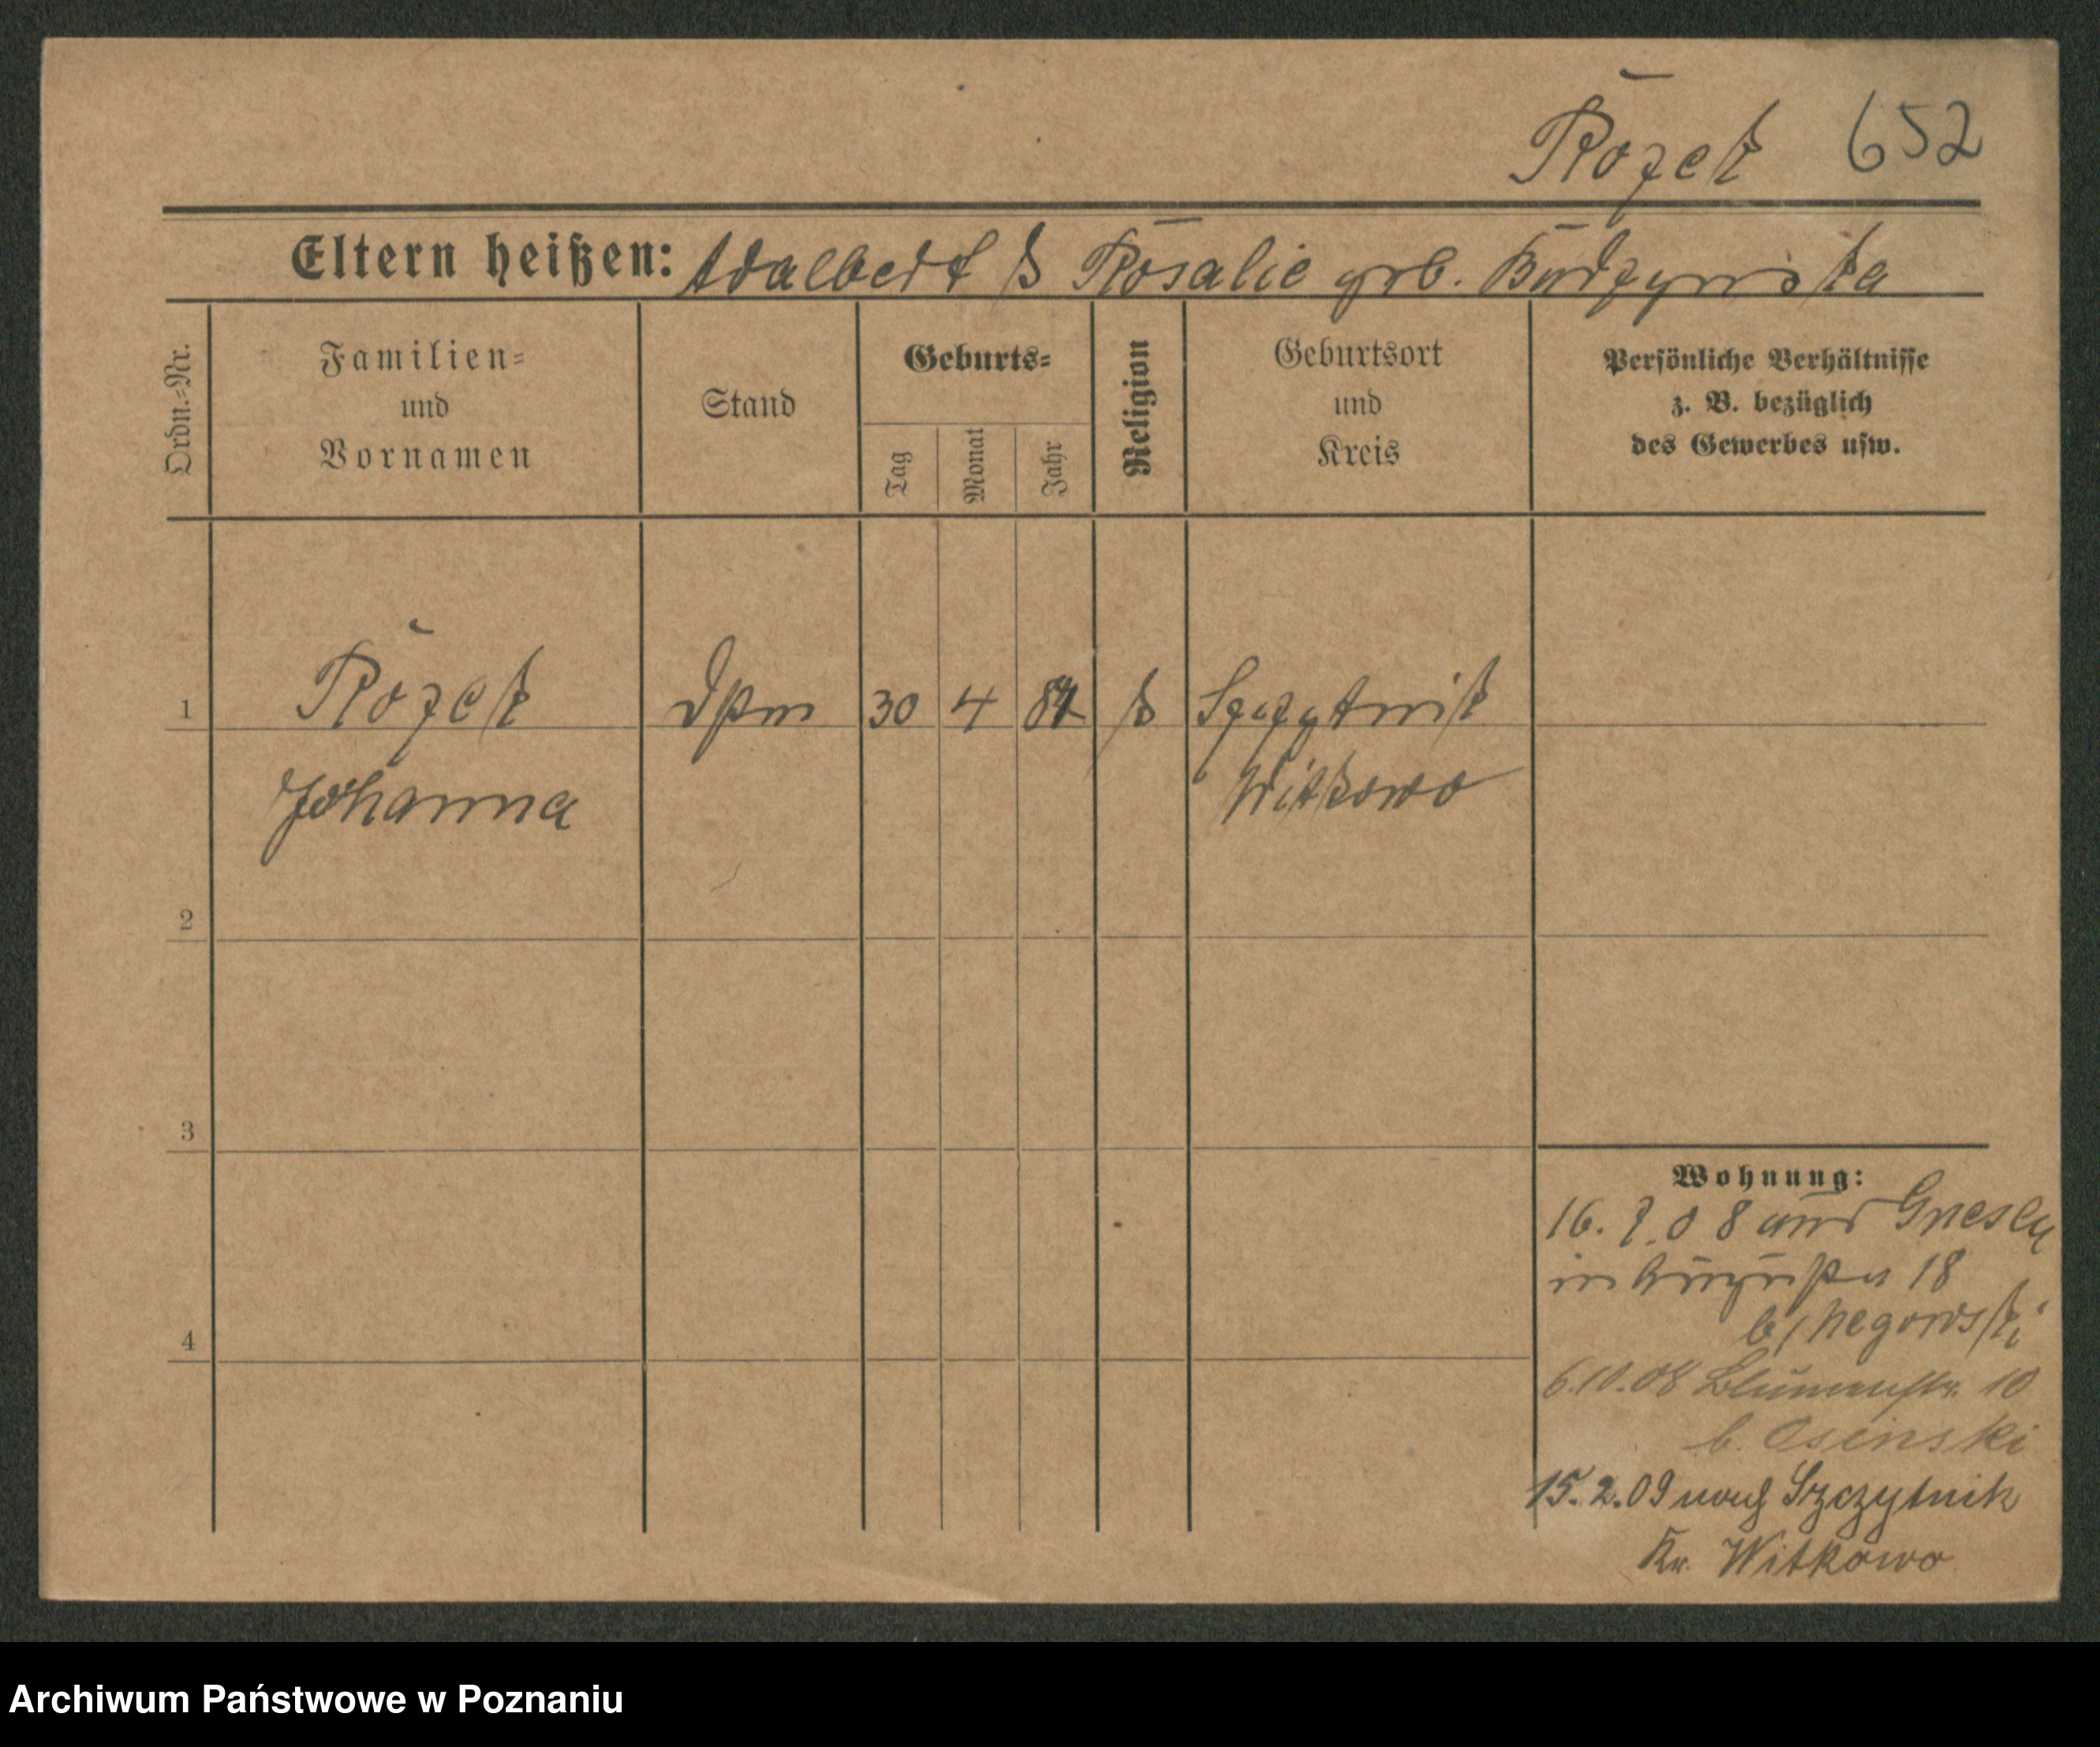 Rożek 652
Eltern heißen: Adalbert & Rosalie geb. Budzynska
Ordn.=Nr.
Familien=
und
Vornamen
Stand
Geburts=
Tag
Monat
Jahr
Religion
Geburtsort
und
Kreis
Persönliche Verhältnisse
z. B. bezüglich
des Gewerbes usw.
1 Rożek 30 4 k Szczytnik
Johanna Witkowo
2
3
4
Wohnung:
16. 7. 08 aus Gnesen
18
6.10.08 Blumenstr. 10
b. Osinski
15. 2. 09 nach Szczytnik
Kr. Witkowo
Archiwum Państwowe w Poznaniu